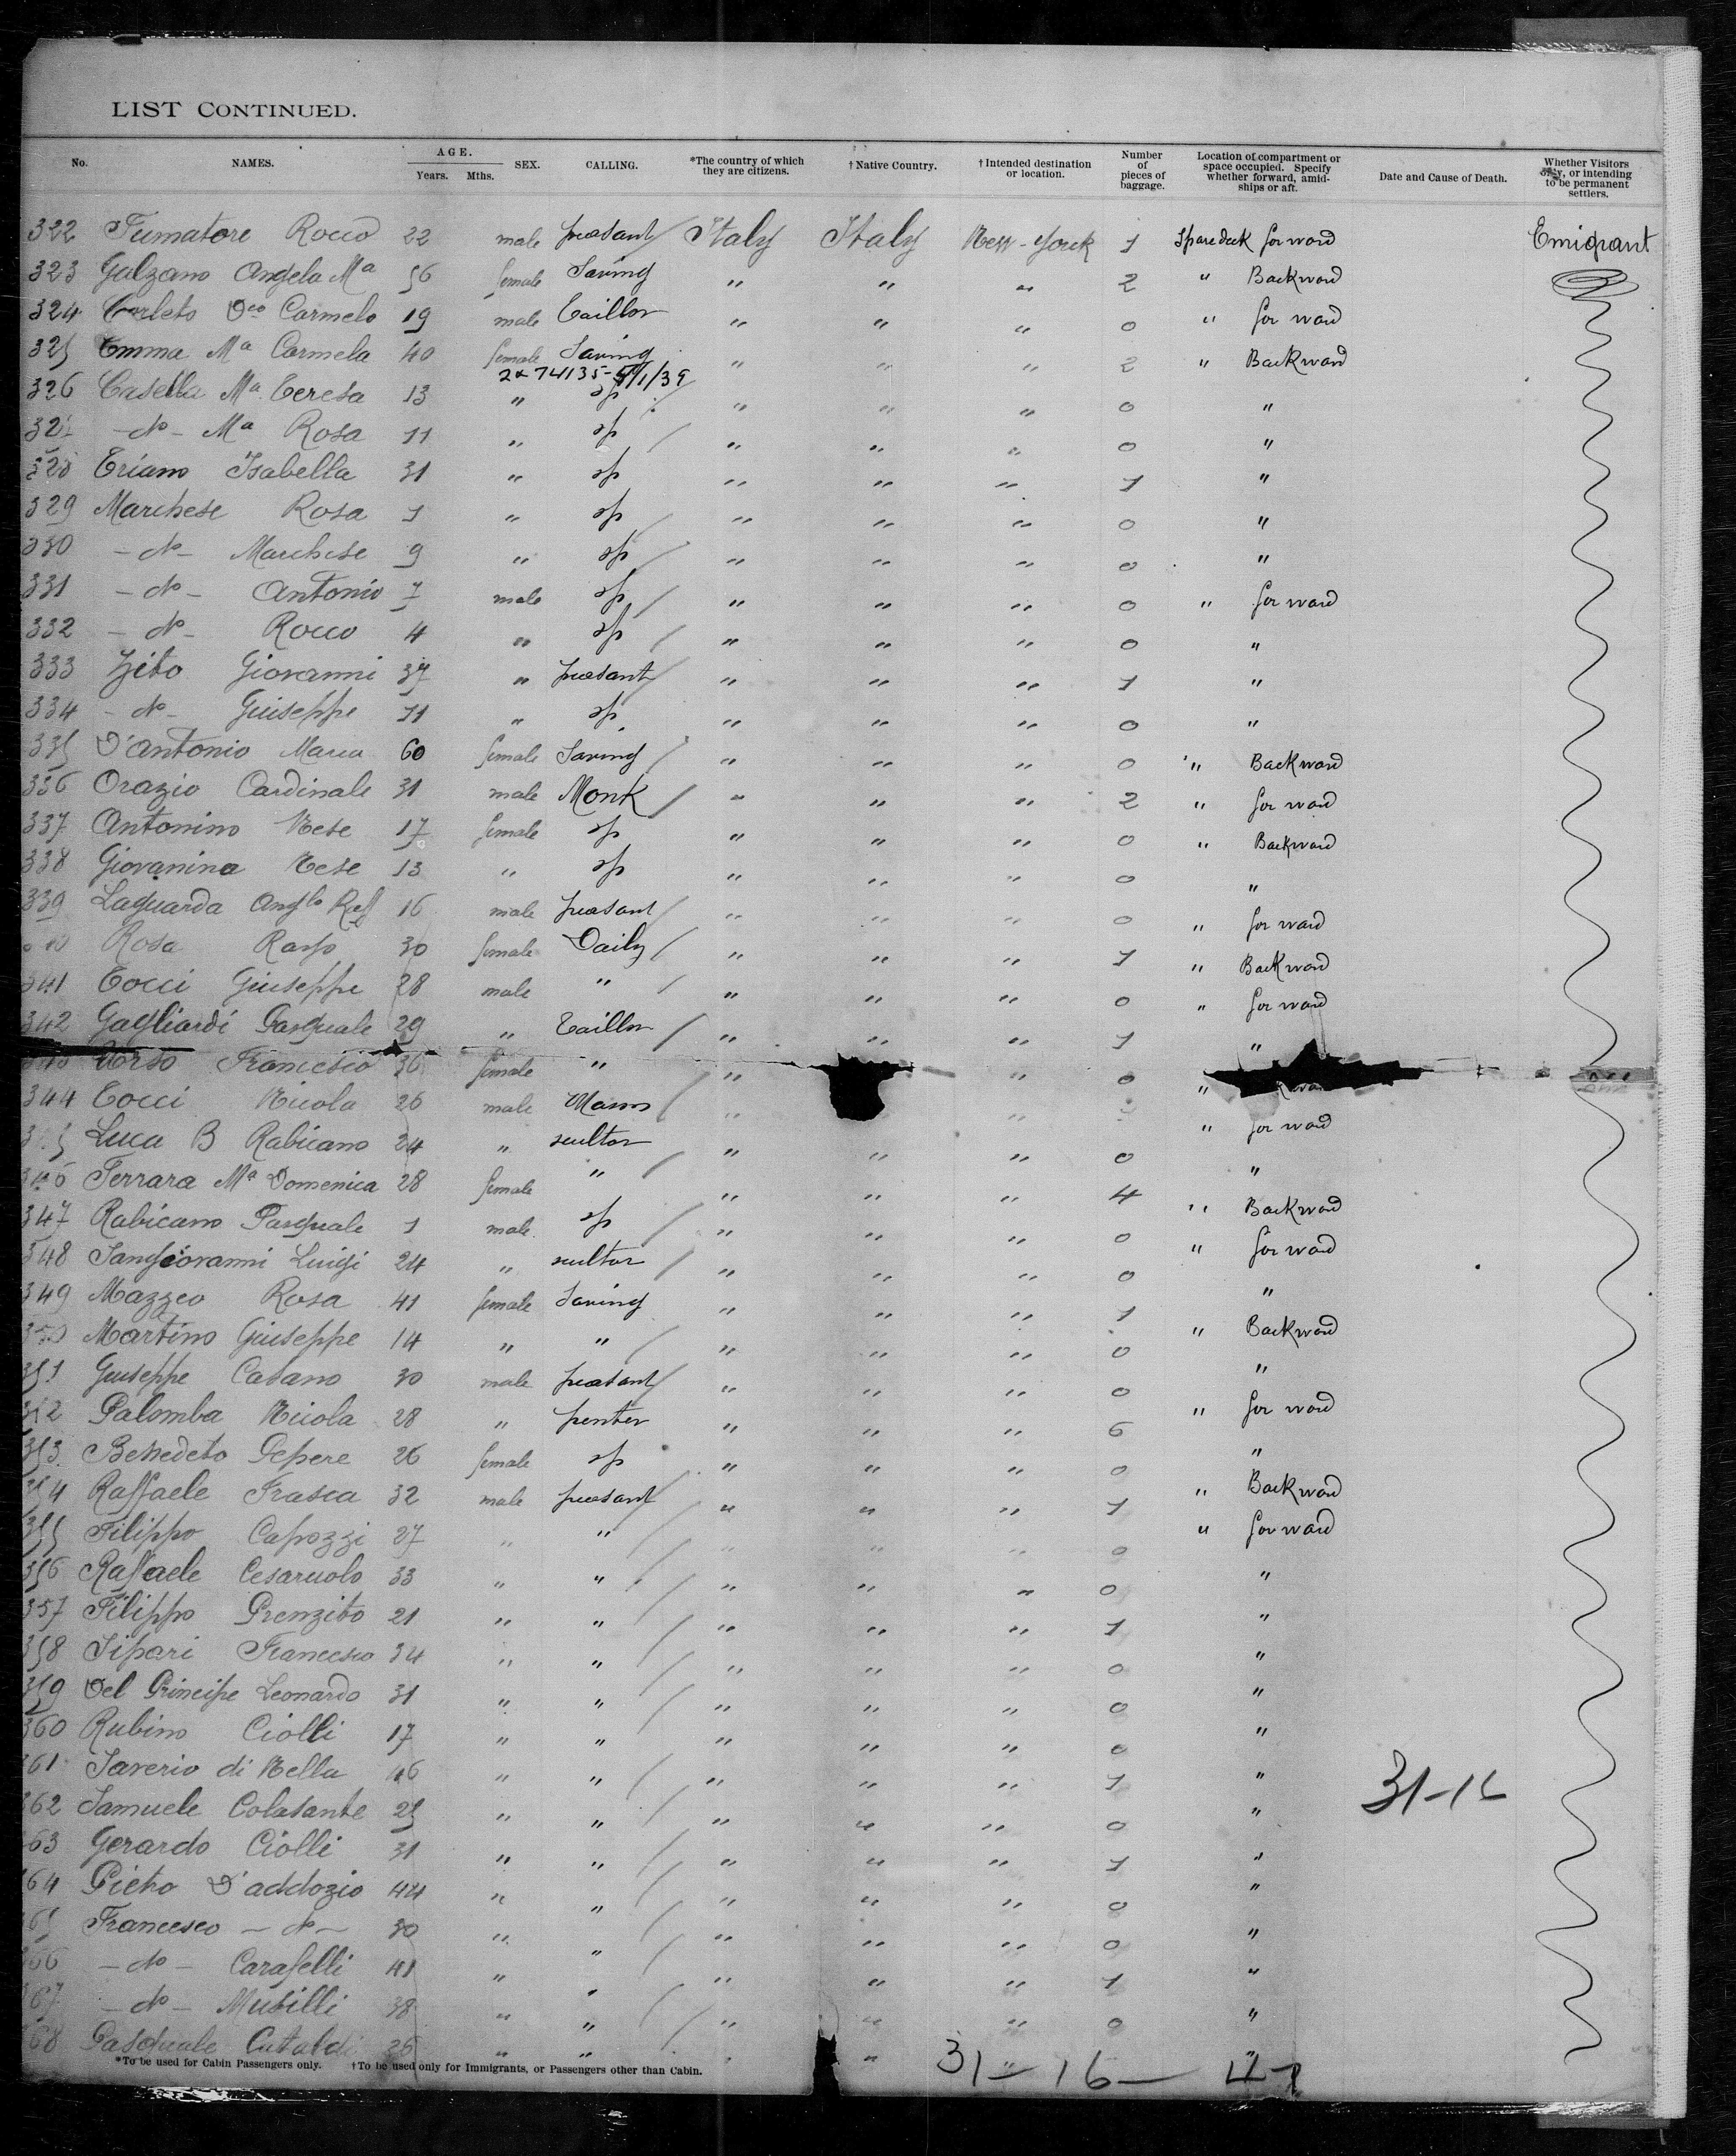 LIST CONTINUED.
No. NAMES. AGE. Years. Mths. SEX. CALLING. *The country of which they are citizens. †Native Country. †Intended destination or location. Number of pieces of baggage. Location of compartment or space occupied. Specify whether forward, amidships or aft. Date and Cause of Death. Whether Visitors only, or intending to be permanent settlers.
322 Fumatore Rocco 22 male peasant Italy Italy New-York 1 Sparedeck for ward Emigrant
323 Galzano Angela Ma 56 female Saving " " " 2 " Backward
324 Corleto Dco Carmelo 19 male Taillor " " " 0 " for ward
325 Emma Ma Carmela 40 female Saving " " " 2 " Backward
2x 74135- 1/39
326 Casella Ma Teresa 13 " sp " " " 0 "
327 -do- Ma Rosa 11 " sp " " " 0 "
328 Triano Isabella 31 " sp " " " 1 "
329 Marchese Rosa 1 " sp " " " 0 "
330 -do- Marchese 9 " sp " " " 0 "
331 -do- Antonio 7 male sp " " " 0 " for ward
332 -do- Rocco 4 " sp " " " 0 "
333 Zito Giovanni 37 " peasant " " " 1 "
334 -do- Giuseppe 11 " sp " " " 0 "
335 D'Antonio Maria 60 female Saving " " " 0 " Backward
336 Orazio Cardinale 31 male Monk " " " 2 " for ward
337 Antonino Nese 17 female sp " " " 0 " Backward
338 Giovanina Nese 13 " sp " " " 0 "
339 Laguarda Anglo Raf 16 male peasant " " " 0 " for ward
Rosa Raso 30 female Daily " " " 1 " Backward
341 Tocci Giuseppe 28 male " " " " 0 " for ward
342 Gagliardi Pasquale 29 " Taillor " " " 1 "
Torso Francesco 36 female " " " 0 "
344 Tocci Nicola 26 male Mason " " " for ward
Luca B Rabicano 24 " scultor " " " 0 "
346 Ferrara Ma Domenica 28 female " " " " 4 " Backward
347 Rabicano Pasquale 1 male sp " " " 0 " for ward
348 Sangiovanni Luigi 24 " scultor " " " 0 "
349 Mazzeo Rosa 41 female Saving " " " 1 " Backward
350 Martino Giuseppe 14 " " " " " 0 "
351 Giuseppe Casano 30 male peasant " " " 0 " for ward
352 Palomba Nicola 28 " penter " " " 6 "
353 Benedeto Pepere 26 female sp " " " 0 " Backward
354 Raffaele Frasca 32 male peasant " " " 1 " for ward
355 Filippo Capozzi 27 " " " " " 0
356 Raffaele Cesaruolo 33 " " " " " 0 "
357 Filippo Prenzito 21 " " " " " 1 "
358 Sipari Francesco 34 " " " " " 0 "
359 Del Principe Leonardo 31 " " " " " 0 "
360 Rubino Ciolli 17 " " " " " 0 "
361 Saverio di Nella 46 " " " " " 1 "
31-16
362 Samuele Colasante 25 " " " " " 0 "
63 Gerardo Ciolli 31 " " " " " 1 "
64 Pietro D'addozio 44 " " " " " 0 "
65 Francesco -do- 30 " " " " " 0 "
66 -do- Carafelli 41 " " " " " 1 "
67 -do- Musilli 38 " " " " " 0 "
68 Pasquale Cataldi 26 " " " " " "
*To be used for Cabin Passengers only. †To be used only for Immigrants, or Passengers other than Cabin.
31-16-